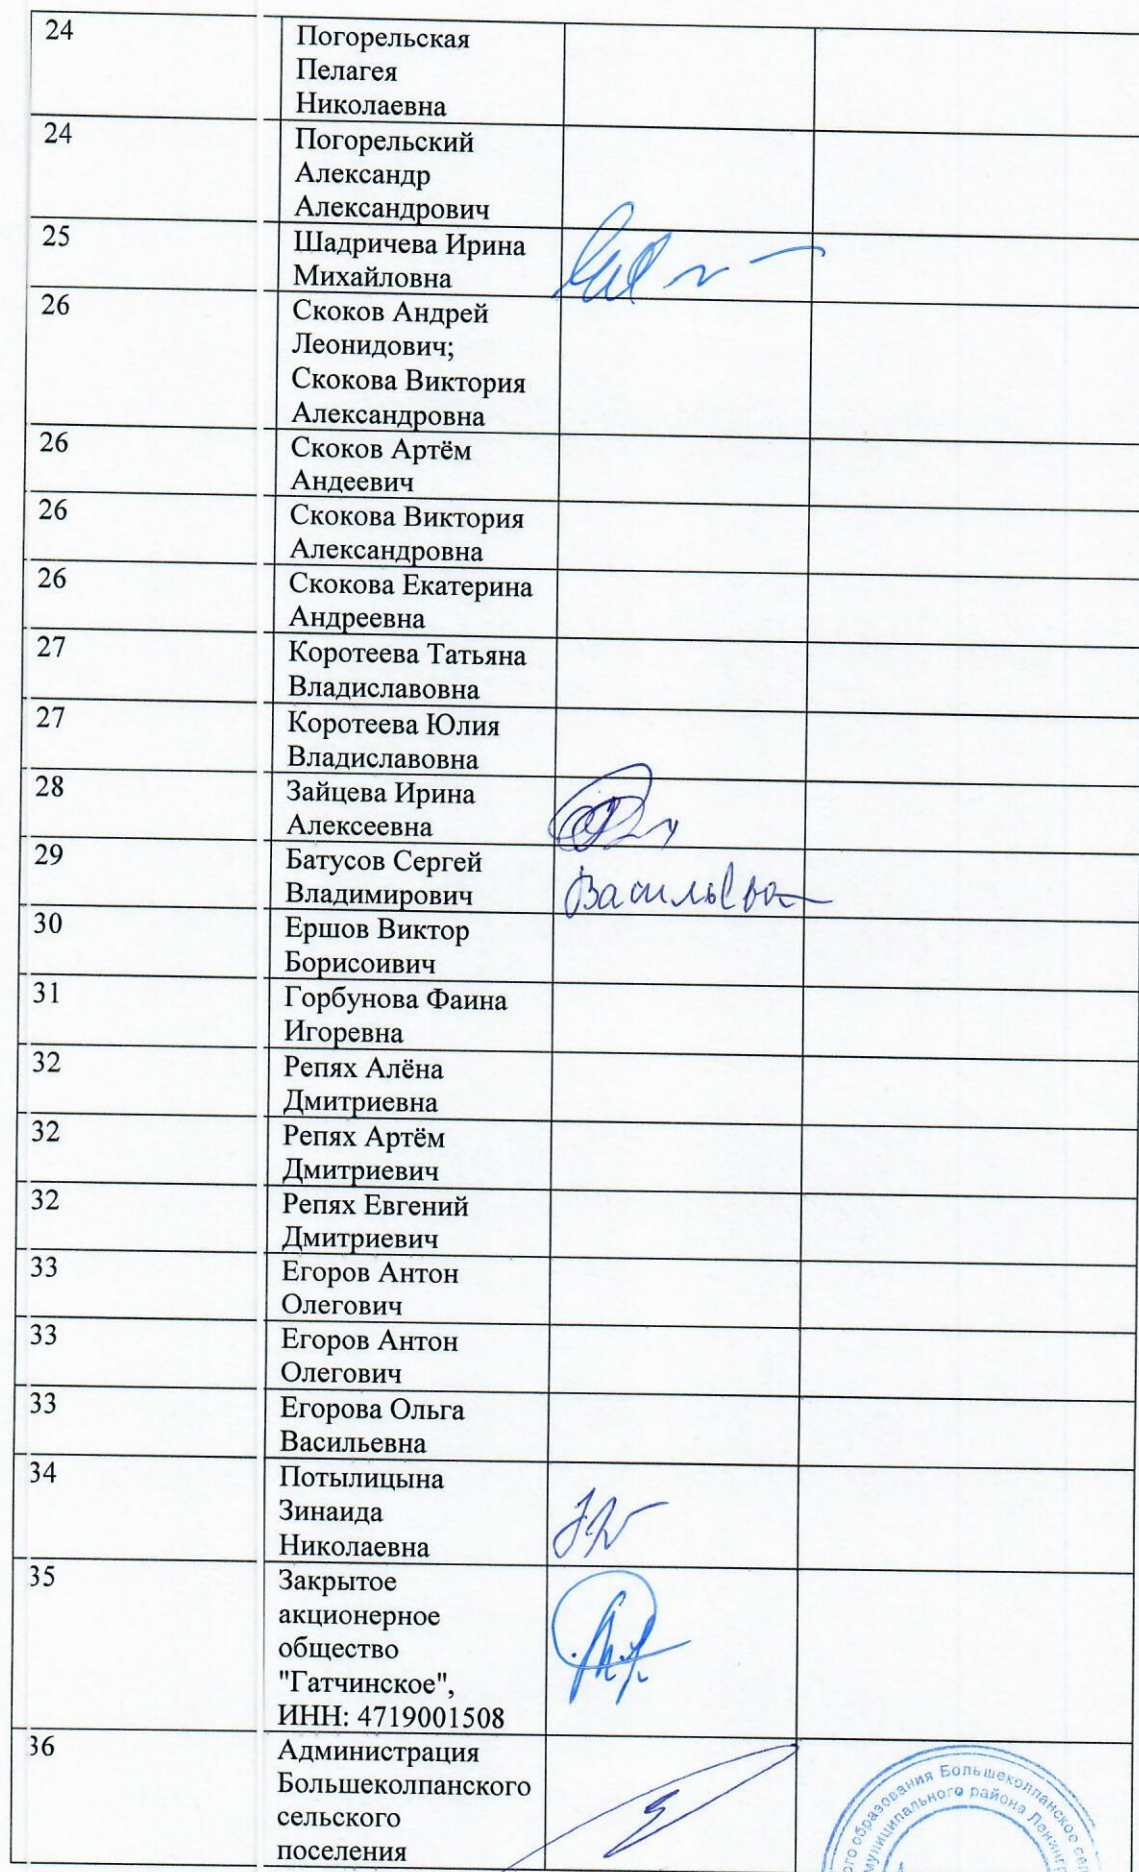 24
Погорельская
Пелагея
Николаевна
24
Погорельский
Александр
Александрович
25
Шадричева Ирина
Михайловна
26
Скоков Андрей
Леонидович;
Скокова Виктория
Александровна
26
Скоков Артём
Андеевич
26
Скокова Виктория
Александровна
26
Скокова Екатерина
Андреевна
27
Коротеева Татьяна
Владиславовна
27
Коротеева Юлия
Владиславовна
28
Зайцева Ирина
Алексеевна
29
Батусов Сергей
Владимирович
Васильева
30
Ершов Виктор
Борисоивич
31
Горбунова Фаина
Игоревна
32
Репях Алёна
Дмитриевна
32
Репях Артём
Дмитриевич
32
Репях Евгений
Дмитриевич
33
Егоров Антон
Олегович
33
Егоров Антон
Олегович
33
Егорова Ольга
Васильевна
34
Потылицына
Зинаида
Николаевна
35
Закрытое
акционерное
общество
"Гатчинское",
ИНН: 4719001508
36
Администрация
Большеколпанского
сельского
поселения
ого образования Большеколпанское сел
муниципального района Ленинг